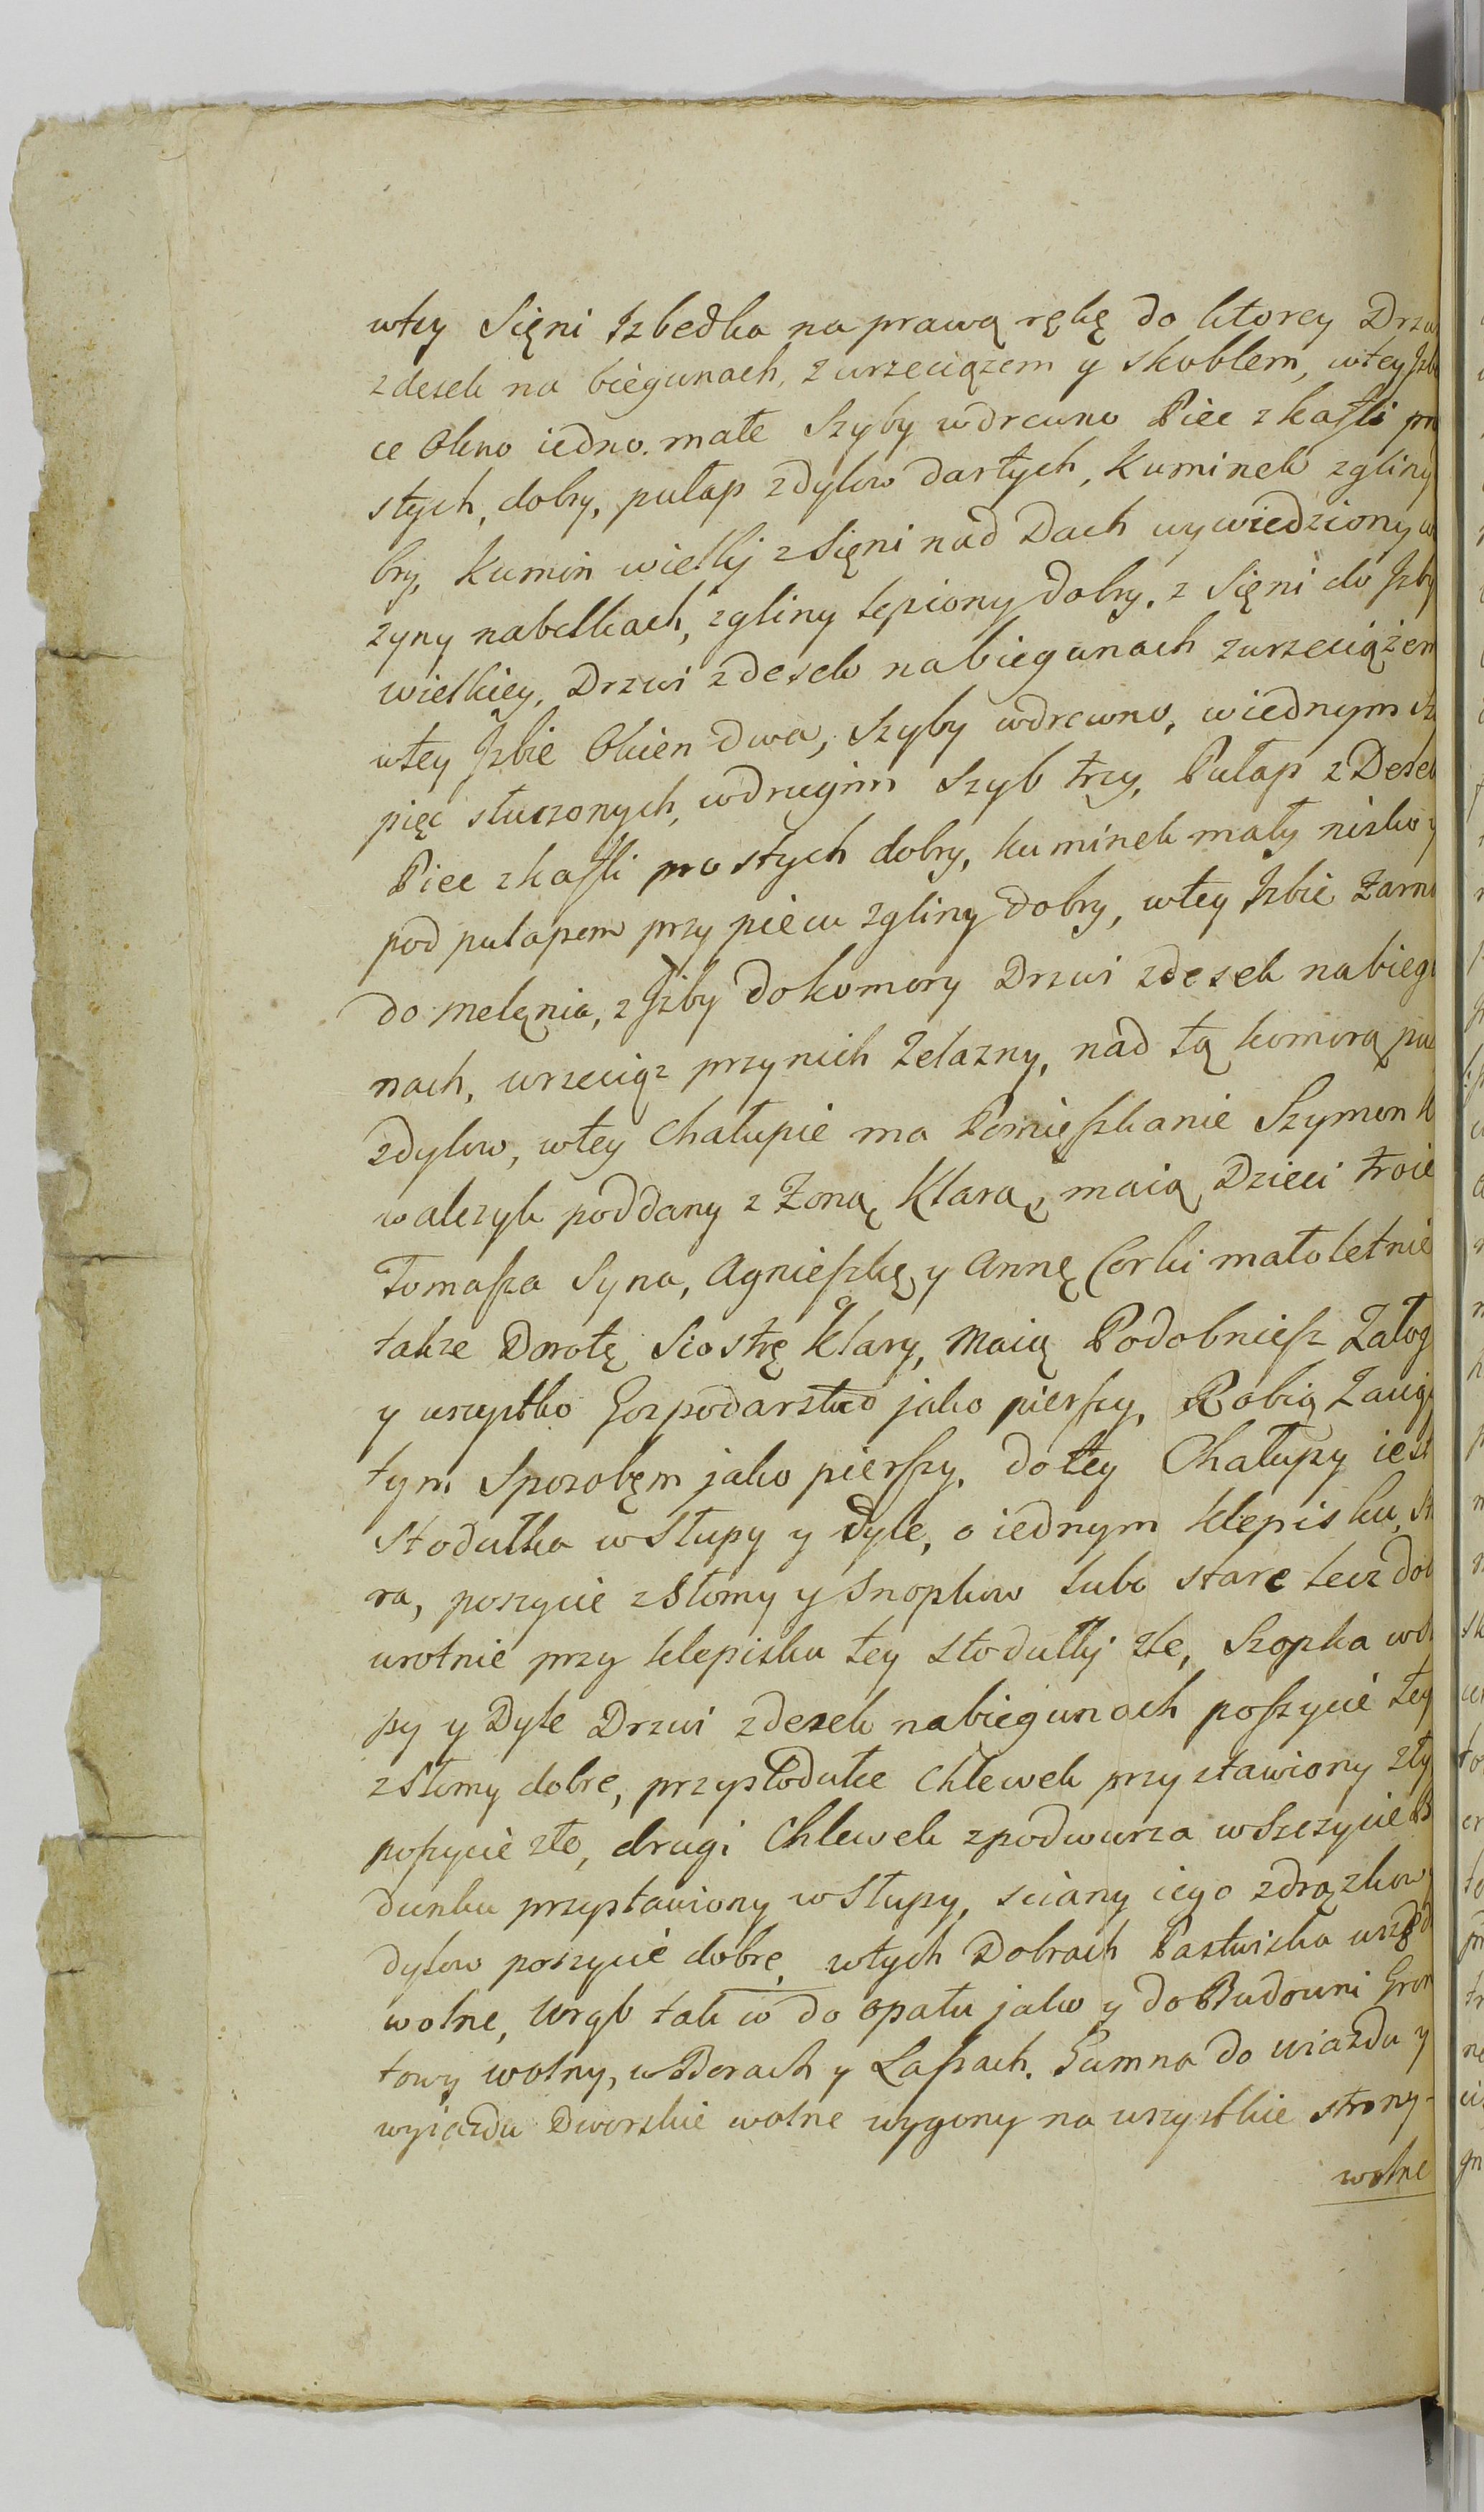 wtey Sięni Izbedka na prawą rękę do ktorey Drzw
zdesek na biegunach, z wrzeciązem y skoblem, wtey Izb
ce Okno iedno. małe Szyby wdrewno Piec zkafli pro
stych, dobry, pułap zdylow dartych, Kuminek zgliny
bry, Kumin wielkj zSięni nad Dach wywiedziony w
zyny nabelkach, zgliny lepiony dobry. z Sięni do Izby
wielkiey, Drzwi zdesek nabiegunach zwrzeciążem
wtey Izbie Okien dwa, Szyby wdrewno, wiednym sz
pięc stuczonych, wdrugim Szyb trzy, Pułap z Desek
Piec zkafli prostych dobry, kuminek mały nisko y
pod pułapem przy piecu zgliny dobry, wtey Izbie Żarna
do melęnia, z Izby do komory Drzwi zdesek nabiegu
nach, wrzeciąz przynich Żelazny, nad tą komorą pu
zdylow, wtey Chałupie ma Pomięszkanie Szymon K
walczyk poddany z Żoną Klarą, maią Dzieci troie
Tomasza Syna, Agnieszkę y Annę Corki małoletnie
takze Dorotę Siostrę Klary, Maią Podobniesz Załog
y wszystko Gospodarstwo jako pierszy, Robią Zaciąg
tym Sposobęm jako pierszy, dotey Chałupy iest
Stodułka wSłupy y dyle, o iednym klepisku, st
ra, poszycie zSłomy y Snopkow lubo stare lecz dob
wrotnie przy klepisku tey Stodułkj złe, Szopka wSł
py y Dyle Drzwi zdesek nabiegunach poszycie tey
zSłomy dobre, przystodułce Chlewek przystawiony zły
poszycie złe, drugi Chlewek zpodwurza wSzczycie B
dunku przystawiony wSłupy, sciany iego zdrązkow y
dylow poszycie dobre, wtych Dobrach Pastwiska wszęd
wolne, Wrąb tak w do opału jako y do Budowni Gron
towy wolny, wBorach y Lasach. Gumna do wiazdu y
wyiazdu Dworskie wolne wygony na wszystkie strony-
wolne